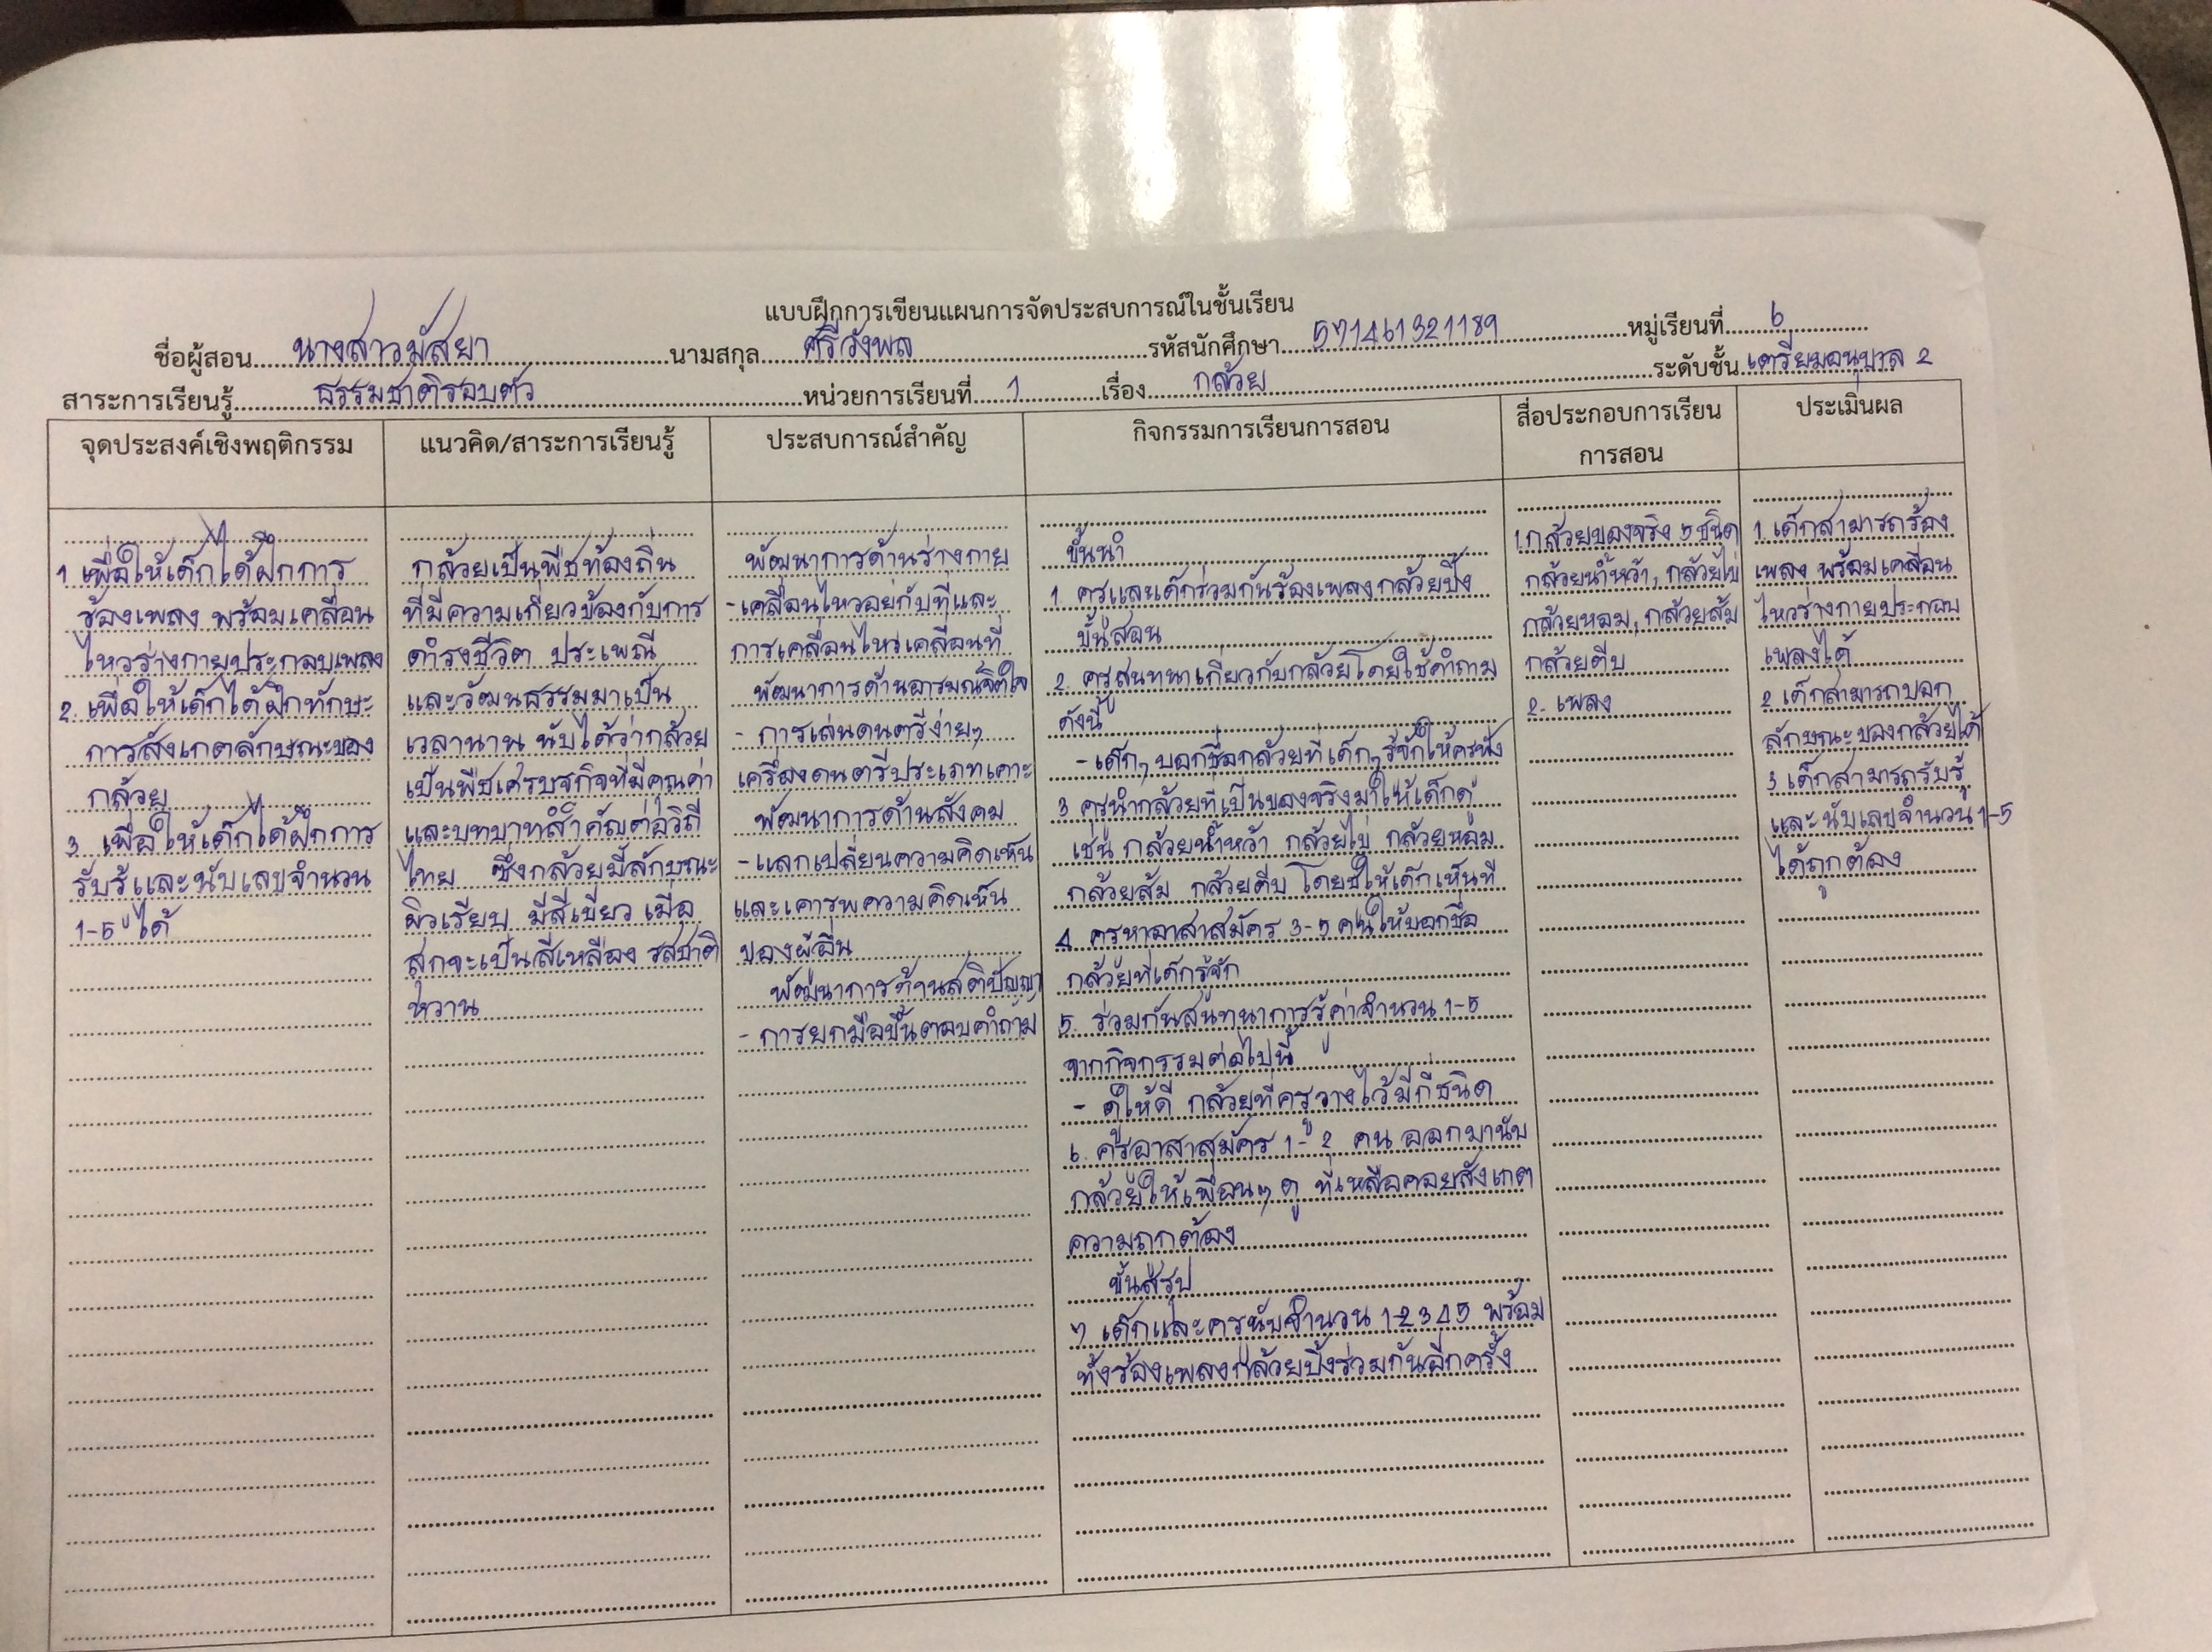 แบบฝึกการเขียนแผนการจัดประสบการณ์ในชั้นเรียน
ชื่อผู้สอน นางสาวมัสยา นามสกุล ศรีวังพล รหัสนักศึกษา 571461321189 หมู่เรียนที่ 6
สาระการเรียนรู้ ธรรมชาติรอบตัว หน่วยการเรียนที่ 1 เรื่อง กล้วย ระดับชั้น เตรียมอนุบาล 2
จุดประสงค์เชิงพฤติกรรม
1. เพื่อให้เด็กได้ฝึกการ
ร้องเพลง พร้อมเคลื่อน
ไหวร่างกายประกอบเพลง
2. เพื่อให้เด็กได้ฝึกทักษะ
การสังเกตลักษณะของ
กล้วย
3. เพื่อให้เด็กได้ฝึกการ
รับรู้และนับเลขจำนวน
1-5 ได้
แนวคิด/สาระการเรียนรู้
กล้วยเป็นพืชท้องถิ่น
ที่มีความเกี่ยวข้องกับการ
ดำรงชีวิต ประเพณี
และวัฒนธรรมมาเป็น
เวลานาน นับได้ว่ากล้วย
เป็นพืชเศรษฐกิจที่มีคุณค่า
และบทบาทสำคัญต่อวิถี
ไทย ซึ่งกล้วยมีลักษณะ
ผิวเรียบ มีสีเขียว เมื่อ
สุกจะเป็นสีเหลือง รสชาติ
หวาน
ประสบการณ์สำคัญ
พัฒนาการด้านร่างกาย
-เคลื่อนไหวอยู่กับที่และ
การเคลื่อนไหวเคลื่อนที่
พัฒนาการด้านอารมณ์จิตใจ
- การเล่นดนตรีง่ายๆ
เครื่องดนตรีประเภทเคาะ
พัฒนาการด้านสังคม
-แลกเปลี่ยนความคิดเห็น
และเคารพความคิดเห็น
ของผู้อื่น
พัฒนาการด้านสติปัญญา
- การยกมือขึ้นตอบคำถาม
กิจกรรมการเรียนการสอน
ขั้นนำ
1. ครูและเด็กร่วมกันร้องเพลงกล้วยปิ้ง
ขั้นสอน
2. ครูสนทนาเกี่ยวกับกล้วยโดยใช้คำถาม
ดังนี้
-เด็กๆ บอกชื่อกล้วยที่เด็กๆ รู้จักให้ครูฟัง
3 ครูนำกล้วยที่เป็นของจริงมาให้เด็กดู
เช่น กล้วยน้ำหว้า กล้วยไข่ กล้วยหอม
กล้วยส้ม กล้วยตีบ โดยชี้ให้เด็กเห็นที
4. ครูหาอาสาสมัคร 3-5 คนให้บอกชื่อ
กล้วยที่เด็กรู้จัก
5. ร่วมกันสนทนาการรู้ค่าจำนวน 1-5
จากกิจกรรมต่อไปนี้
- ดูให้ดี กล้วยที่ครูวางไว้มีกี่ชนิด
6. ครูอาสาสมัคร 1-2 คน ออกมานับ
กล้วยให้เพื่อนๆ ดู ที่เหลือคอยสังเกต
ความถูกต้อง
ขั้นสรุป
7 เด็กและครูนับจำนวน 1-2 3 4 5 พร้อม
ทั้งร้องเพลงกล้วยปิ้งร่วมกันอีกครั้ง
สื่อประกอบการเรียน
การสอน
1.กล้วยของจริง 5 ชนิด
กล้วยน้ำหว้า, กล้วยไข่
กล้วยหอม, กล้วยส้ม
กล้วยตีบ
2. เพลง
ประเมินผล
1. เด็กสามารถร้อง
เพลง พร้อมเคลื่อน
ไหวร่างกายประกอบ
เพลงได้
2 เด็กสามารถบอก
ลักษณะของกล้วยได้
3 เด็กสามารถรับรู้
และ นับเลขจำนวน 1-5
ได้ถูกต้อง